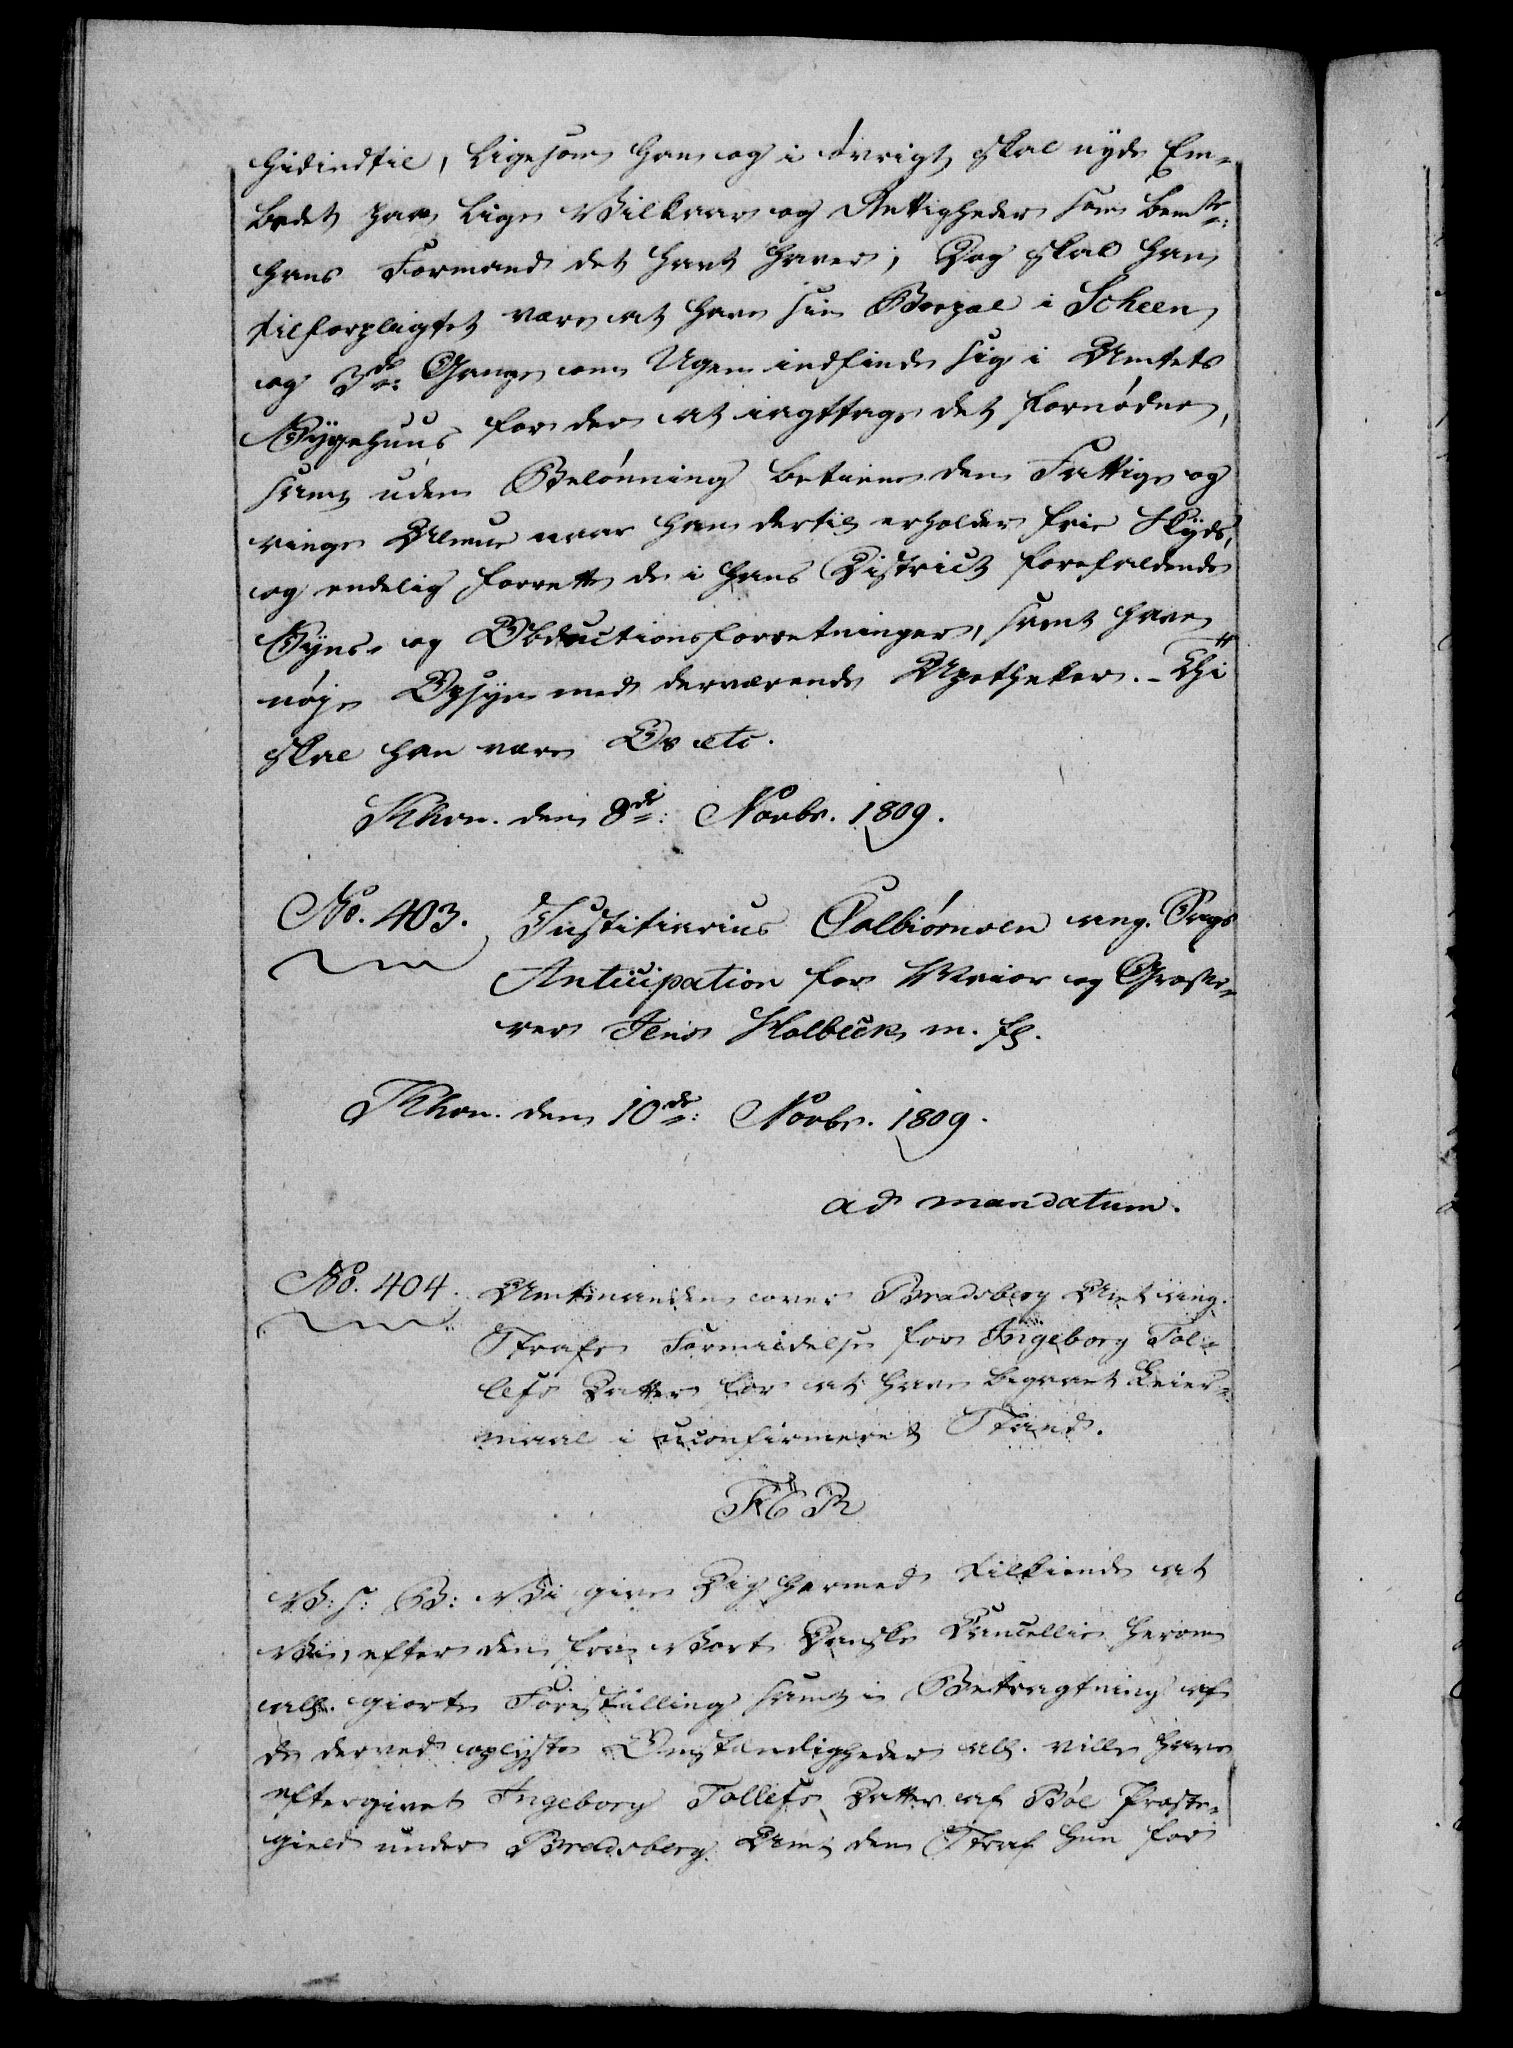 hidindtil, ligesom han og i øvrigt skal nyde Em-
bedet paa lige Vilkaar og Rettigheder som bemte:
hans Formand det havt haver; Dog skal han
tilforpligtet være at have sin Boepæl i Scheen,
og 3de: Gange om Ugen indfinde sig i Amtets
Sygehuus for der at iagttage det fornødne,
samt uden Belønning betiene den Fattige og
ringe Almue naar han dertil erholder frie Skyds,
og endelig forrette de i hans District forefaldende
Syns- og Obductionsforretninger, samt have
nøje Opsyn med derværende Apotheker. - Thi
skal han være Os etc.
Khvn. den 8de: Novbr. 1809.
No. 403. Justitiarius Colbiørnsen ang. Sags
Anticipation for Maior og Grosse-
rer Jens Holbeck m. fl.
Khvn. den 10de: Novbr. 1809.
ad mandatum.
No. 404. Amtmanden over Bradsberg Amt ang.
Strafs Formildelse for Ingeborg Tol-
lefs Datter for at have begaaet Leier-
maal i uconfirmeret Stand.
F 6 R
V: s: G: Vi give Dig hermed tilkiende at
Vi, efter den fra Vort Danske Cancellie herom
all. giorte Forestilling samt i Betragtning af
de derved oplyste Omstændigheder all. ville have
eftergivet Ingeborg Tollefs Datter af Bøe Præste-
gield under Bradsberg Amt den Straf hun for